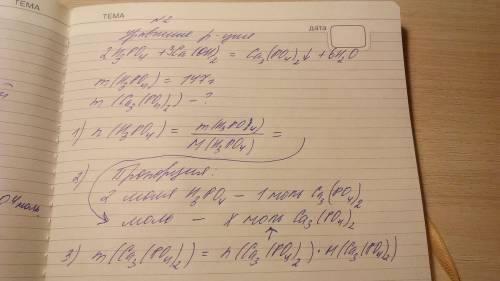 ТЕМА
ТЕМА
дата
№2
Уравнение р-ции
2H₃PO₄ + 3Ca(OH)₂ = Ca₃(PO₄)₂↓ + 6H₂O
m(H₃PO₄) = 147г
m(Ca₃(PO₄)₂) - ?
1) n(H₃PO₄) = m(H₃PO₄)/M(H₃PO₄) =
2) Пропорция:
2 моля H₃PO₄ – 1 моль Ca₃(PO₄)₂
моль – x моль Ca₃(PO₄)₂
3) m(Ca₃(PO₄)₂) = n(Ca₃(PO₄)₂)·M(Ca₃(PO₄)₂)
моль